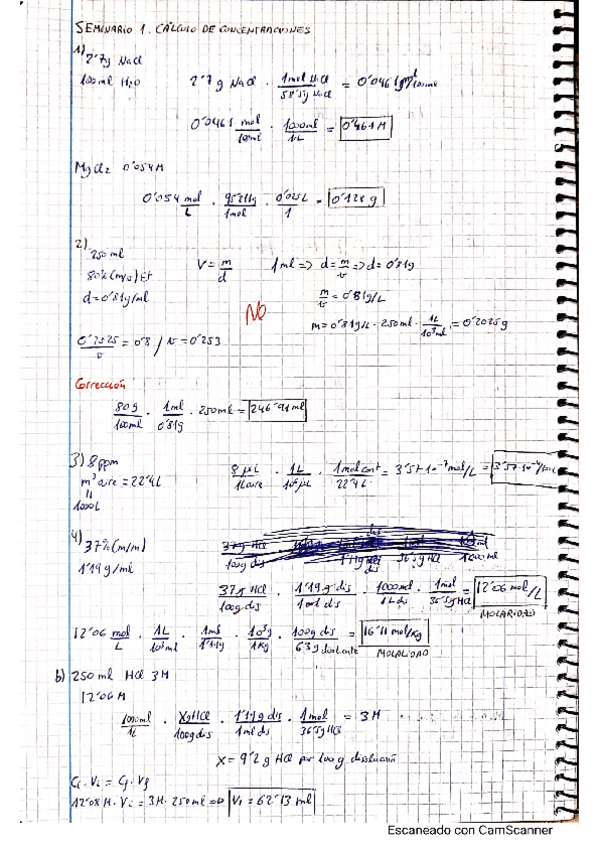 SEMINARIO 1. CÁLCULO DE CONCENTRACIONES
1)
2'7g NaCl
100ml H2O
2'7g NaCl · 1mol NaCl / 58'5g NaCl = 0'0461 mol/100ml
0'0461 mol/100ml · 1000ml/1L = 0'461 M
MgCl2 0'054M
0'054 mol/L · 95'211g/1mol · 0'025L/1 = 0'128 g
2)
250ml
80%(m/v) Et
d=0'81g/ml
V = m/d
1ml => d = m/v => d = 0'81g
m/v = 0'81g/L
NO
m = 0'81g/L · 250ml · 1L/10³ml = 0'2025g
0'2525/v = 0'8 / v = 0'253
Corrección
80g/100ml · 1ml/0'81g · 250ml = 246'91ml
3) 8ppm
m³ aire = 22'4L
1000L
8μL/1L aire · 1L/10⁶μL · 1mol cont/22'4L = 3'57·10⁻⁷ mol/L =
4)
37%(m/m)
1'19 g/ml
37g HCl/100g dis · 1'19g dis/1ml dis · 1000ml/1L dis · 1mol/36'5g HCl = 12'06 mol/L
MOLARIDAD
12'06 mol/L · 1L/10³ml · 1ml/1'19g · 10³g/1kg · 100g dis/63g disolvente = 16'11 mol/kg
MOLALIDAD
b) 250ml HCl 3M
12'06M
1000ml/1L · Xg HCl/100g dis · 1'19g dis/1ml dis · 1mol/36'5g HCl = 3M
X = 9'2g HCl por 100g disolución
Ci · Vi = Cf · Vf
12'08M · Vi = 3M · 250ml => Vi = 62'13 ml
Escaneado con CamScanner